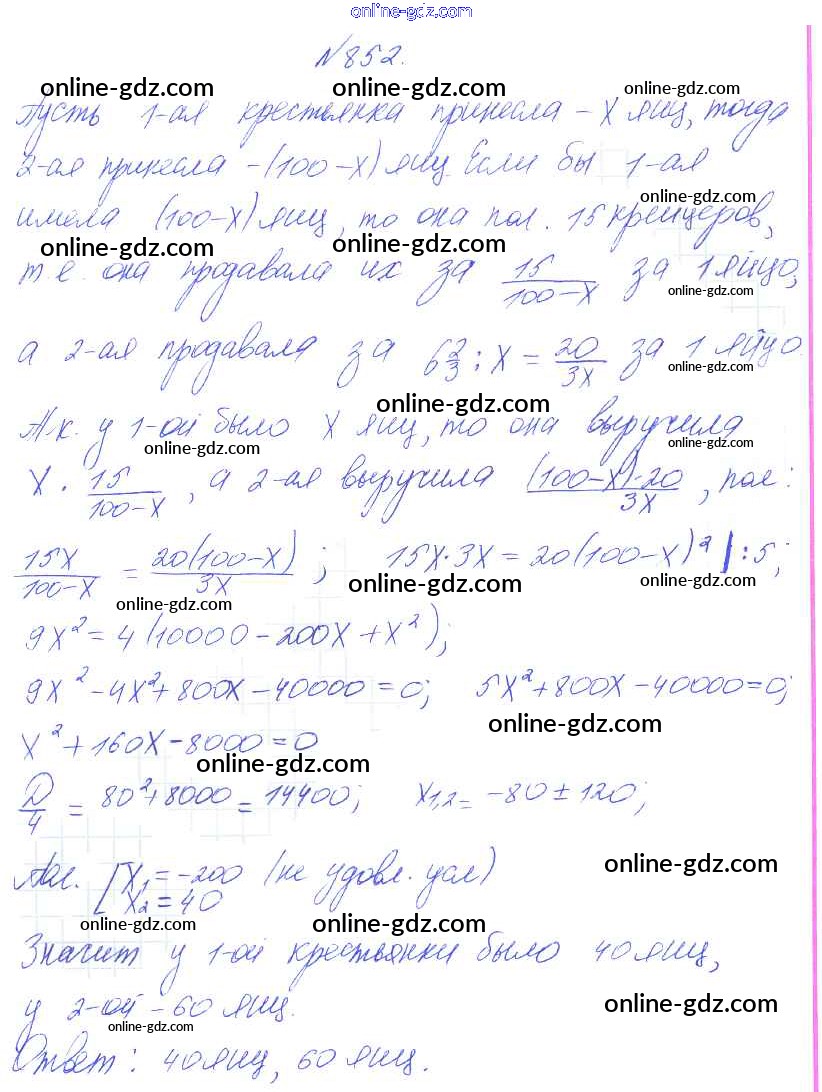 online-gdz.com
№852.
online-gdz.com online-gdz.com online-gdz.com
Пусть 1-ая крестьянка принесла – x яиц, тогда
online-gdz.com online-gdz.com
2-ая принесла – (100 – x) яиц. Если бы 1-ая
online-gdz.com
имела (100 – x) яиц, то она пол. 15 крейцеров,
online-gdz.com online-gdz.com
т.е. она продавала их за 15/(100 – x) за 1 яйцо,
online-gdz.com
а 2-ая продавала за 6 2/3 : x = 20/3x за 1 яйцо.
online-gdz.com
online-gdz.com
Т.к. у 1-ой было x яиц, то она выручила
online-gdz.com online-gdz.com
x · 15/(100 – x), а 2-ая выручила (100 – x)·20/3x, пол:
15x/(100 – x) = 20(100 – x)/3x; 15x·3x = 20(100 – x)² |:5;
online-gdz.com online-gdz.com
online-gdz.com
9x² = 4(10000 – 200x + x²);
9x² – 4x² + 800x – 40000 = 0; 5x² + 800x – 40000 = 0;
online-gdz.com
x² + 160x – 8000 = 0
online-gdz.com
D/4 = 80² + 8000 = 14400; x1,2 = –80 ± 120;
online-gdz.com
[x₁ = –200 (не удовл. усл)
x₂ = 40
online-gdz.com online-gdz.com
Значит у 1-ой крестьянки было 40 яиц,
у 2-ой – 60 яиц.
online-gdz.com
online-gdz.com
Ответ: 40 яиц, 60 яиц.